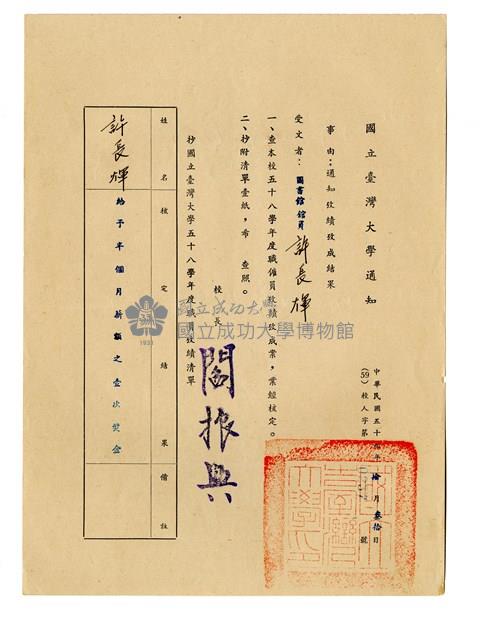 國立臺灣大學通知
中華民國五十九年拾月叁拾日
(59)校人字第 號
事由：通知攷績攷成結果
受文者：圖書館館員 許長輝
一、查本校五十八學年度職僱員攷績攷成案，業經核定。
二、抄附清單壹紙，希 查照。
校長 閻振興
抄國立臺灣大學五十八學年度職員攷績清單
姓名 核定結果 備註
許長輝 給予半個月薪額之壹次獎金
國立成功大學
國立成功大學博物館
1931